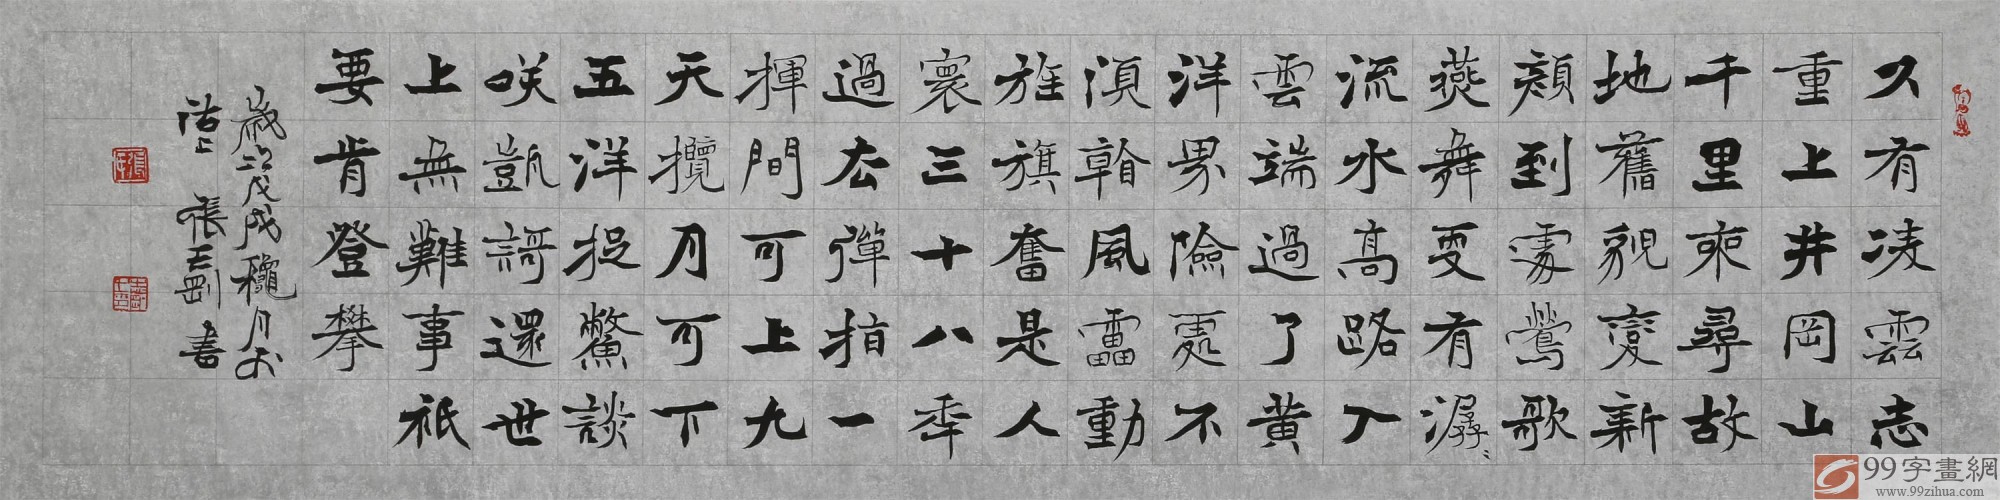 久有凌雲志
重上井岡山
千里來尋故
地舊貌變新
顏到處鶯歌
燕舞更有潺〻
流水高路入
雲端過了黃
洋界險處不
須看風靁動
旌旗奮是人
寰三十八年
過去彈指一
揮間可上九
天攬月可下
五洋捉鱉談
咲凱謌還世
上無難事祇
要肯登攀
歲次戊戌穐月於
沽上 張志剛書
99字畫網
www.99zihua.com